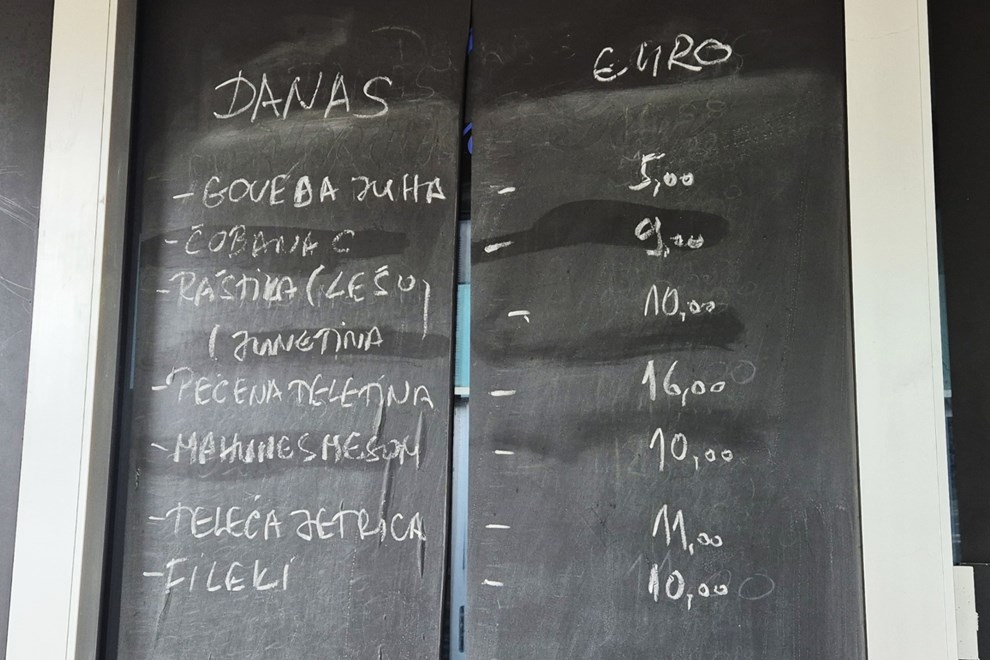 DANAS EURO
- GOVEĐA JUHA - 5,00
- ČOBANAC - 9,00
- RAŠTIKA (LEŠO) - 10,00
( JUNETINA
- PEČENA TELETINA - 16,00
- MAHUNE S MESOM - 10,00
- TELEĆA JETRICA - 11,00
- FILEKI - 10,00